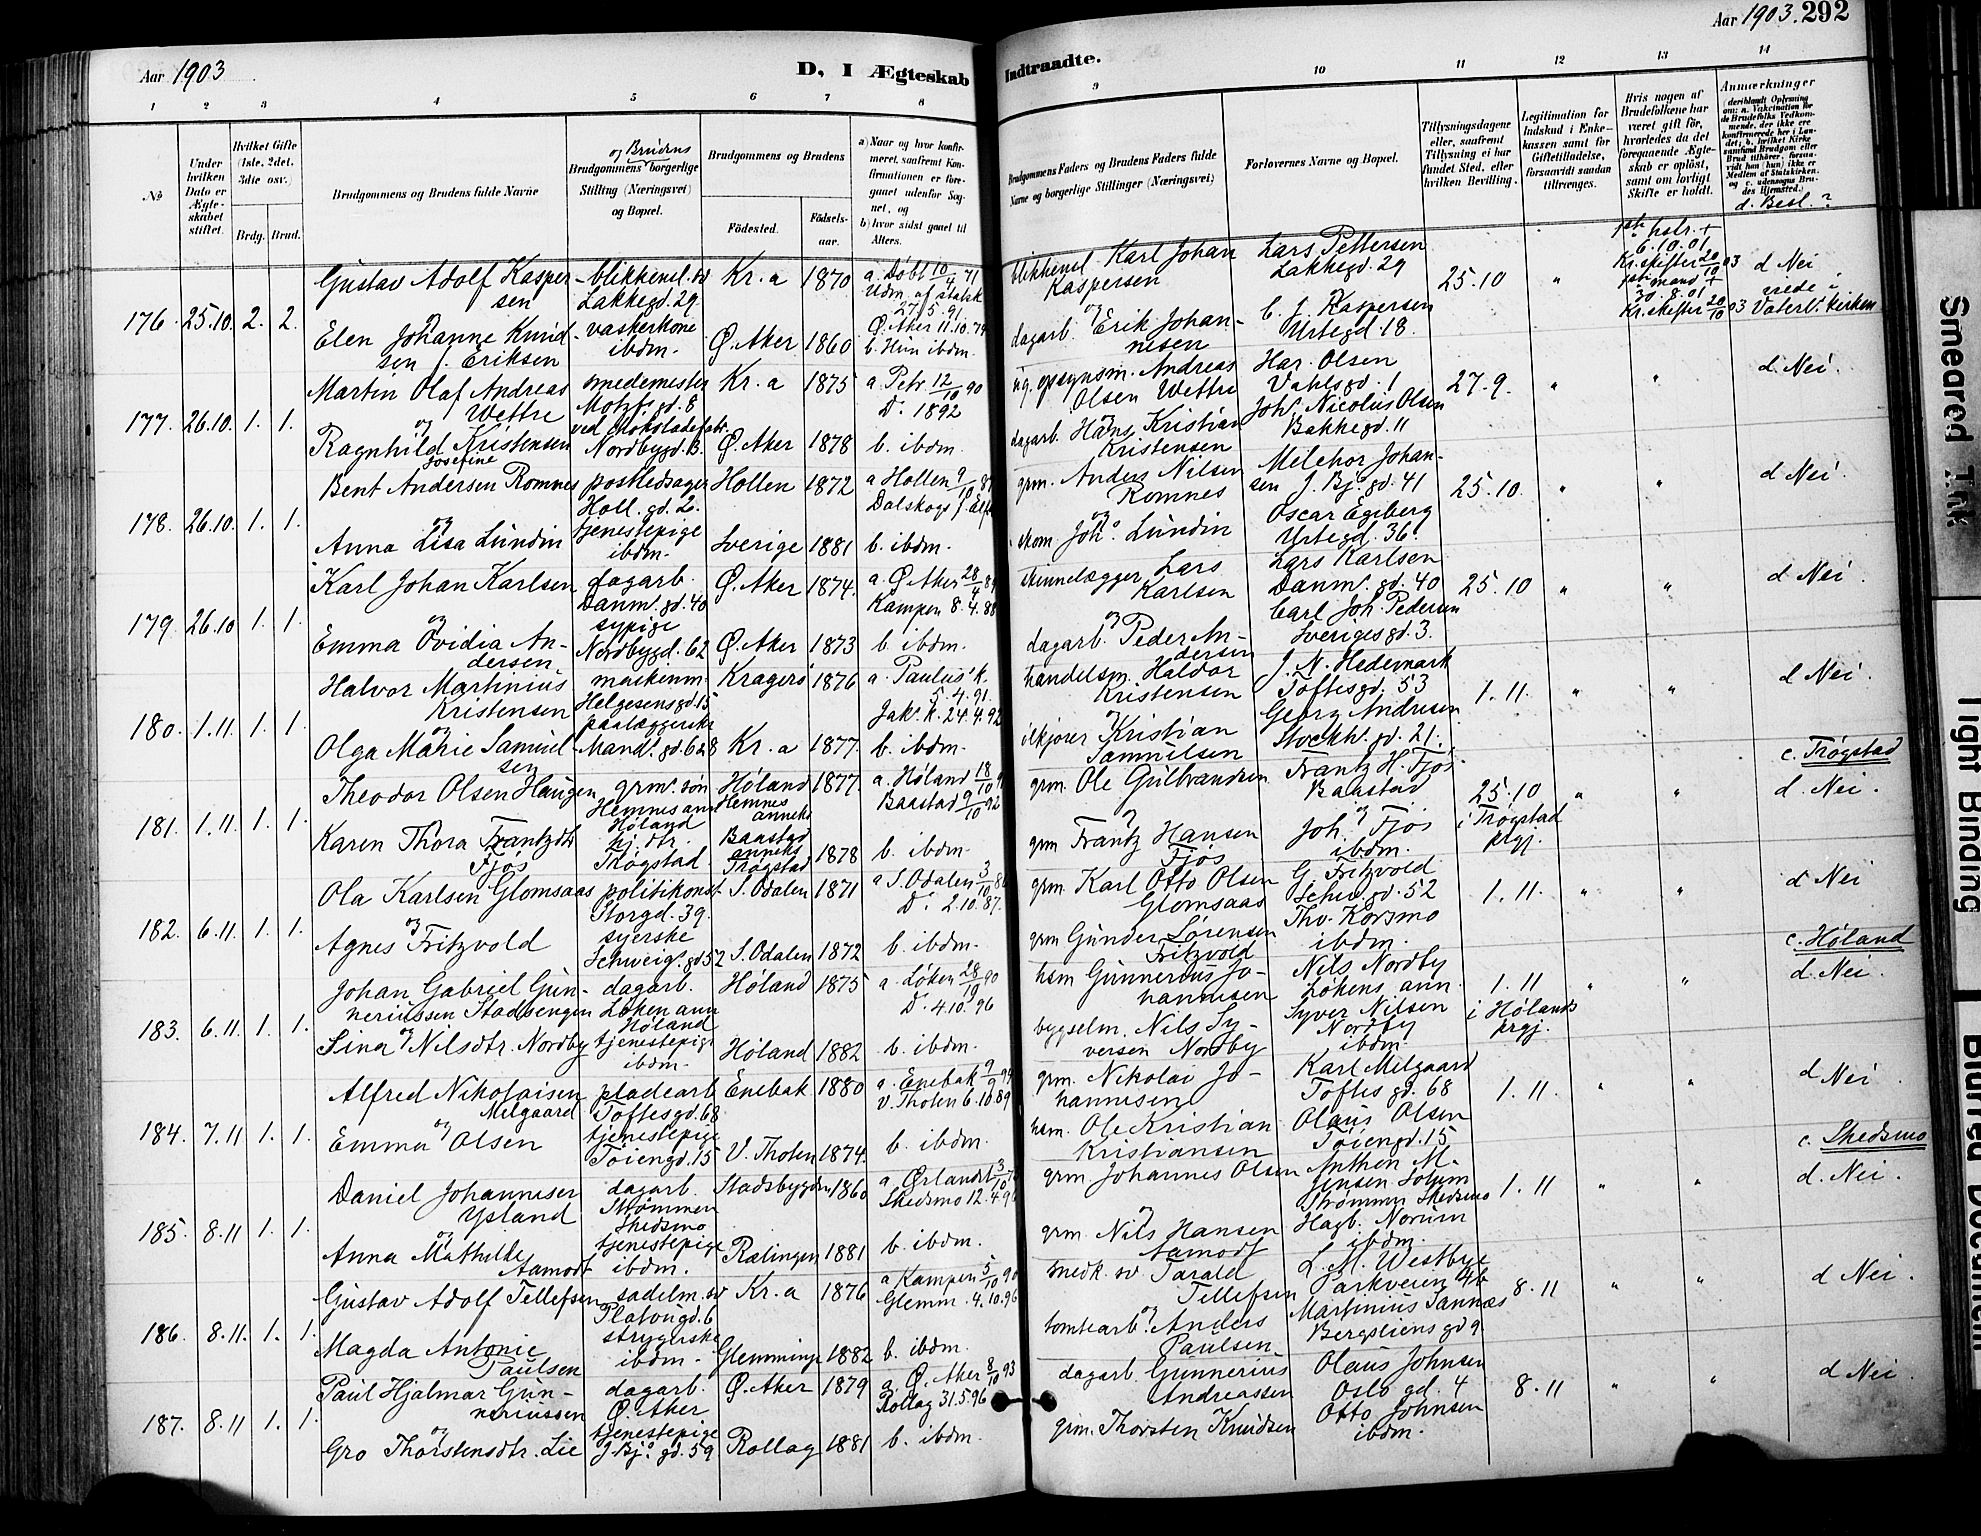 Aar 1903
D, I Ægteskab Indtraadte.
Aar 1903. 292
1 2 3 4 5 6 7 8 9 10 11 12 13 14
No
Under hvilken Dato er Ægteskabet stiftet.
Hvilket Gifte (1ste, 2det, 3die osv.)
Brdg. Brud.
Brudgommens og Brudens fulde Navne
Brudgommens og Brudens borgerlige Stilling (Næringsvei) og Bopæl.
Brudgommens og Brudens
Födested.
Födselsaar.
a) Naar og hvor konfirmeret, saafremt Konfirmationen er foregaaet udenfor Sognet, og
b) hvor sidst gaaet til Alters.
Brudgommens Faders og Brudens Faders fulde Navne og borgerlige Stillinger (Næringsvei)
Forlovernes Navne og Bopæl.
Tillysningsdagene eller, saafremt Tillysning ei har fundet Sted, efter hvilken Bevilling.
Legitimation for Indskud i Enkekassen samt for Giftetilladelse, forsaavidt saadan tiltrænges.
Hvis nogen af Brudefolkene har været gift før, hvorledes da det foregaaende Ægteskab er oplöst, samt om lovligt Skifte er holdt.
Anmærkninger
d. Besl.?
176. 25.10. 2. 2.
Gustav Adolf Kaspersen
blikkensl. sv Lakkegd. 29.
Kr.a 1870
a. Døbt 10/4 71
Udm. af statsk 27.5.91
blikkensl. Karl Johan Kaspersen
Lars Pettersen Lakkegd. 29
25.10 "
6.10.01 Kr. skifter 20/10 03
d Nei
og
Elen Johanne Knudsen f. Eriksen
vaskerkone ibdm.
Ø. Aker 1860
Ø. Aker 11.10.74
b. Hun ibdm.
dagarb. Erik Johannesen
C. J. Kaspersen Urtegd. 18.
30.8.01 Kr. skifter 20/10 03
viede i Vaterl. kirken
177. 26.10. 1. 1.
Marten Olaf Andreas Wettre
smedemester Motzfs gd. 8
Kr.a 1875
a Petr. 12/10 90
D. 1892
opsynsm. Andreas Olsen Wettre
Har. Olsen Vahlsgd. 1
27.9. " "
d. Nei.
og
Ragnhild Josefine Kristensen
ved chokoladefabr. Nordbygd. 13.
Ø. Aker 1878
b. ibdm.
dagarb. Hans Kristian Kristensen
Johs. Nicolas Olsen Bakkegd. 11
178. 26.10. 1. 1.
Bent Andersen Romnes
postledsager Holl. gd. 2.
Hollen 1872
a Hollen 9/10 87
grm. Anders Nilsen Romnes
Melchor Johansen J. Bj. gd. 41
25.10. " "
d Nei.
og
Anna Lisa Lundin
tjenestepige ibdm.
Sverige 1881
b. ibdm.
skom Johs. Lundin
Oscar Egeberg Urtegd. 36.
179. 26.10 1. 1.
Karl Johan Karlsen
dagarb. Danm. gd. 40
Ø. Aker 1874.
a. Ø. Aker 28/4 89
Kampen 8.4.88
skindlægger Lars Karlsen
Lars Karlsen Danm. gd. 40
25.10 " "
d Nei.
og
Emma Ovidia Andersen
sypige Nordbygd. 62
Ø. Aker 1873
b. ibdm.
dagarb. Peder Andersen
Carl Joh. Pedersen Sverigesgd. 3.
180. 1.11. 1. 1.
Halvor Martinius Kristensen
maskinm. Helgesensgd. 15
Kragerø 1876
a. Paulus' k. 5.4.91.
Jak. k. 24.4.92
handelsm. Haldor Kristensen
J. N. Hedemark Toftesgd. 53
1.11. " "
d Nei.
og
Olga Marie Samuelsen
paalæggerske Mand. gd. 6 a 8
Kr.a 1877.
b. ibdm.
ilkjører Kristian Samuelsen
Georg Andresen Stockh. gd. 21.
181. 1.11. 1. 1.
Theodor Olsen Haugen
grm. søn Hemnes ann Høland
Høland Hemnes anneks 1877.
a. Høland 18/10 91
Baastad 9/10 92
grm. Ole Gulbrandsen
Frantz H. Fjøs Baastad
25.10 i Trøgstad prgj. " "
c. Trøgstad
d. Nei.
Karen Thora Frantzdtr Fjøs
hj. dtr. Trøgstad
Baastad anneks Trøgstad 1878
b. ibdm.
og
grm Frantz Hansen Fjøs
Joh. Fjøs ibdm.
182. 6.11. 1. 1.
Ola Karlsen Glomsaas
politikonst Storgd. 39.
S. Odalen 1871
a S. Odalen 3/10 86
D. 2.10.87.
grm. Karl Otto Olsen Glomsaas
G. Fritzvold Schw. gd. 52
1.11. " "
d Nei
og
Agnes Fritzvold
syerske Schweig. gd 52
S. Odalen 1872
b. ibdm.
grm Gunder Sørensen Fritzvold
Thv. Korsmo ibdm.
183. 6.11. 1. 1.
Johan Gabriel Gunneriussen Stadsengen
dagarb. Løken ann Høland
Høland 1875
a. Løken 28/10 90
D. 4.10.96
hsm Gunnerius Johannesen
Nils Nordby Løkens ann.
1.11 i Hølands prgj. " "
c. Høland
d. Nei.
og
Sina Nilsdtr. Nordby
tjenestepige ibdm.
Høland 1882
b. ibdm.
bygselm. Nils Syversen Nordby
Syver Nilsen Nordby ibdm.
184. 7.11 1. 1.
Alfred Nikolaisen Melgaard
pladearb Toftesgd. 68
Enebak 1880
a. Enebak 9/9 94
V. Thoten 6.10.89
grm. Nikolai Johannesen
Karl Melgaard Toftes gd. 68
1.11. " "
d Nei.
og
Emma Olsen
tjenestepige Tøiengd. 15
V. Thoten 1874.
b. ibdm.
hsm. Ole Kristian Kristiansen
Olaus Olsen Tøiengd. 15
185. 8.11 1. 1.
Daniel Johannesen Ysland
dagarb. Strømmen Skedsmo
Stadsbygden 1860
a. Ørlandet 3/10
Skedsmo 12.4.96
grm Johannes Olsen
Anthon M. Jensen Solum Strømmen Skedsmo
1.11 " "
c. Skedsmo
d. Nei.
og
Anna Mathilde Aamodt
tjenestepige ibdm.
Rælingen 1881
b. ibdm.
grm. Nils Hansen Aamodt
Hagb. Norum ibdm.
186. 8.11. 1. 1.
Gustav Adolf Tellefsen
sadelm. sv Platougd. 6
Kr.a 1876
a Kampen 5/10 90
Glemm. 4.10.96
snedk. sv Tarald Tellefsen
L. M. Westbye Parkveien 4b
8.11 " "
d Nei.
Magda Antonie Paulsen
strygerske ibdm.
Glemminge 1882
b. ibdm.
og
tomtearb. Anders Paulsen
Martinius Sannæs Bergsliens gd 9
187. 8.11 1. 1.
Paul Hjalmar Gunneriussen
dagarb. Ø. Aker
Ø. Aker 1879
a. Ø. Aker 8/10 93
Rollag 31.5.96
dagarb. Gunnerius Andreassen
Olaus Johnsen Oslo gd. 4
8.11 " "
d Nei.
og
Gro Thorstensdtr. Lie
tjenestepige J. Bj. gd. 59
Rollag 1881
b. ibdm.
grm. Thorsten Knudsen
Otto Johnsen ibdm.
Smeared Ink
Tight Binding
Blurred Document